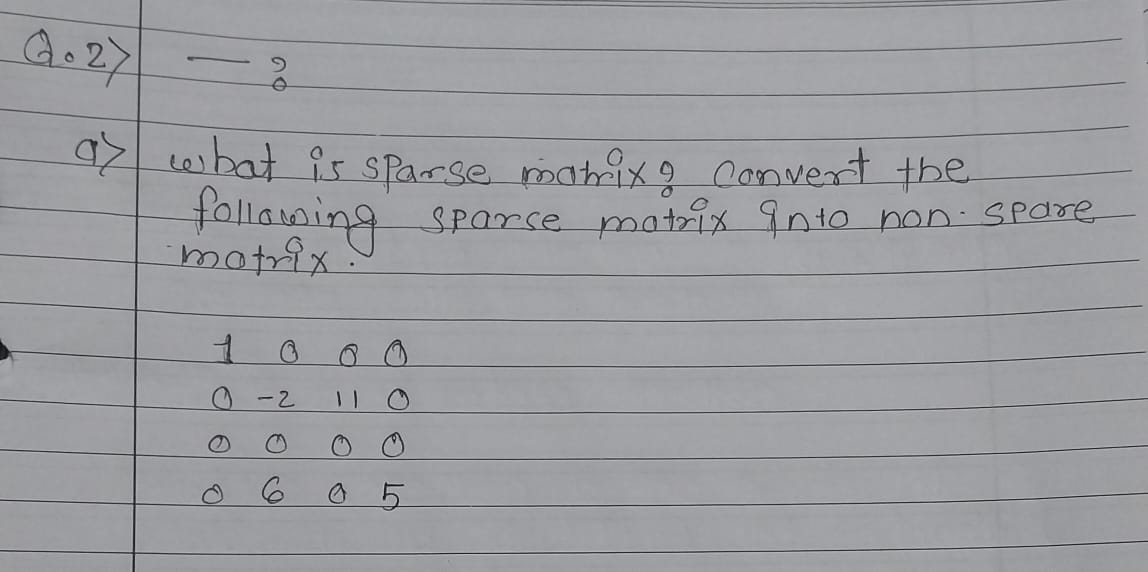 Q.2> — ?
a> what is sparse matrix? Convert the
following sparse matrix into non-spare
matrix.
1 0 0 0
0 -2 11 0
0 0 0 0
0 6 0 5